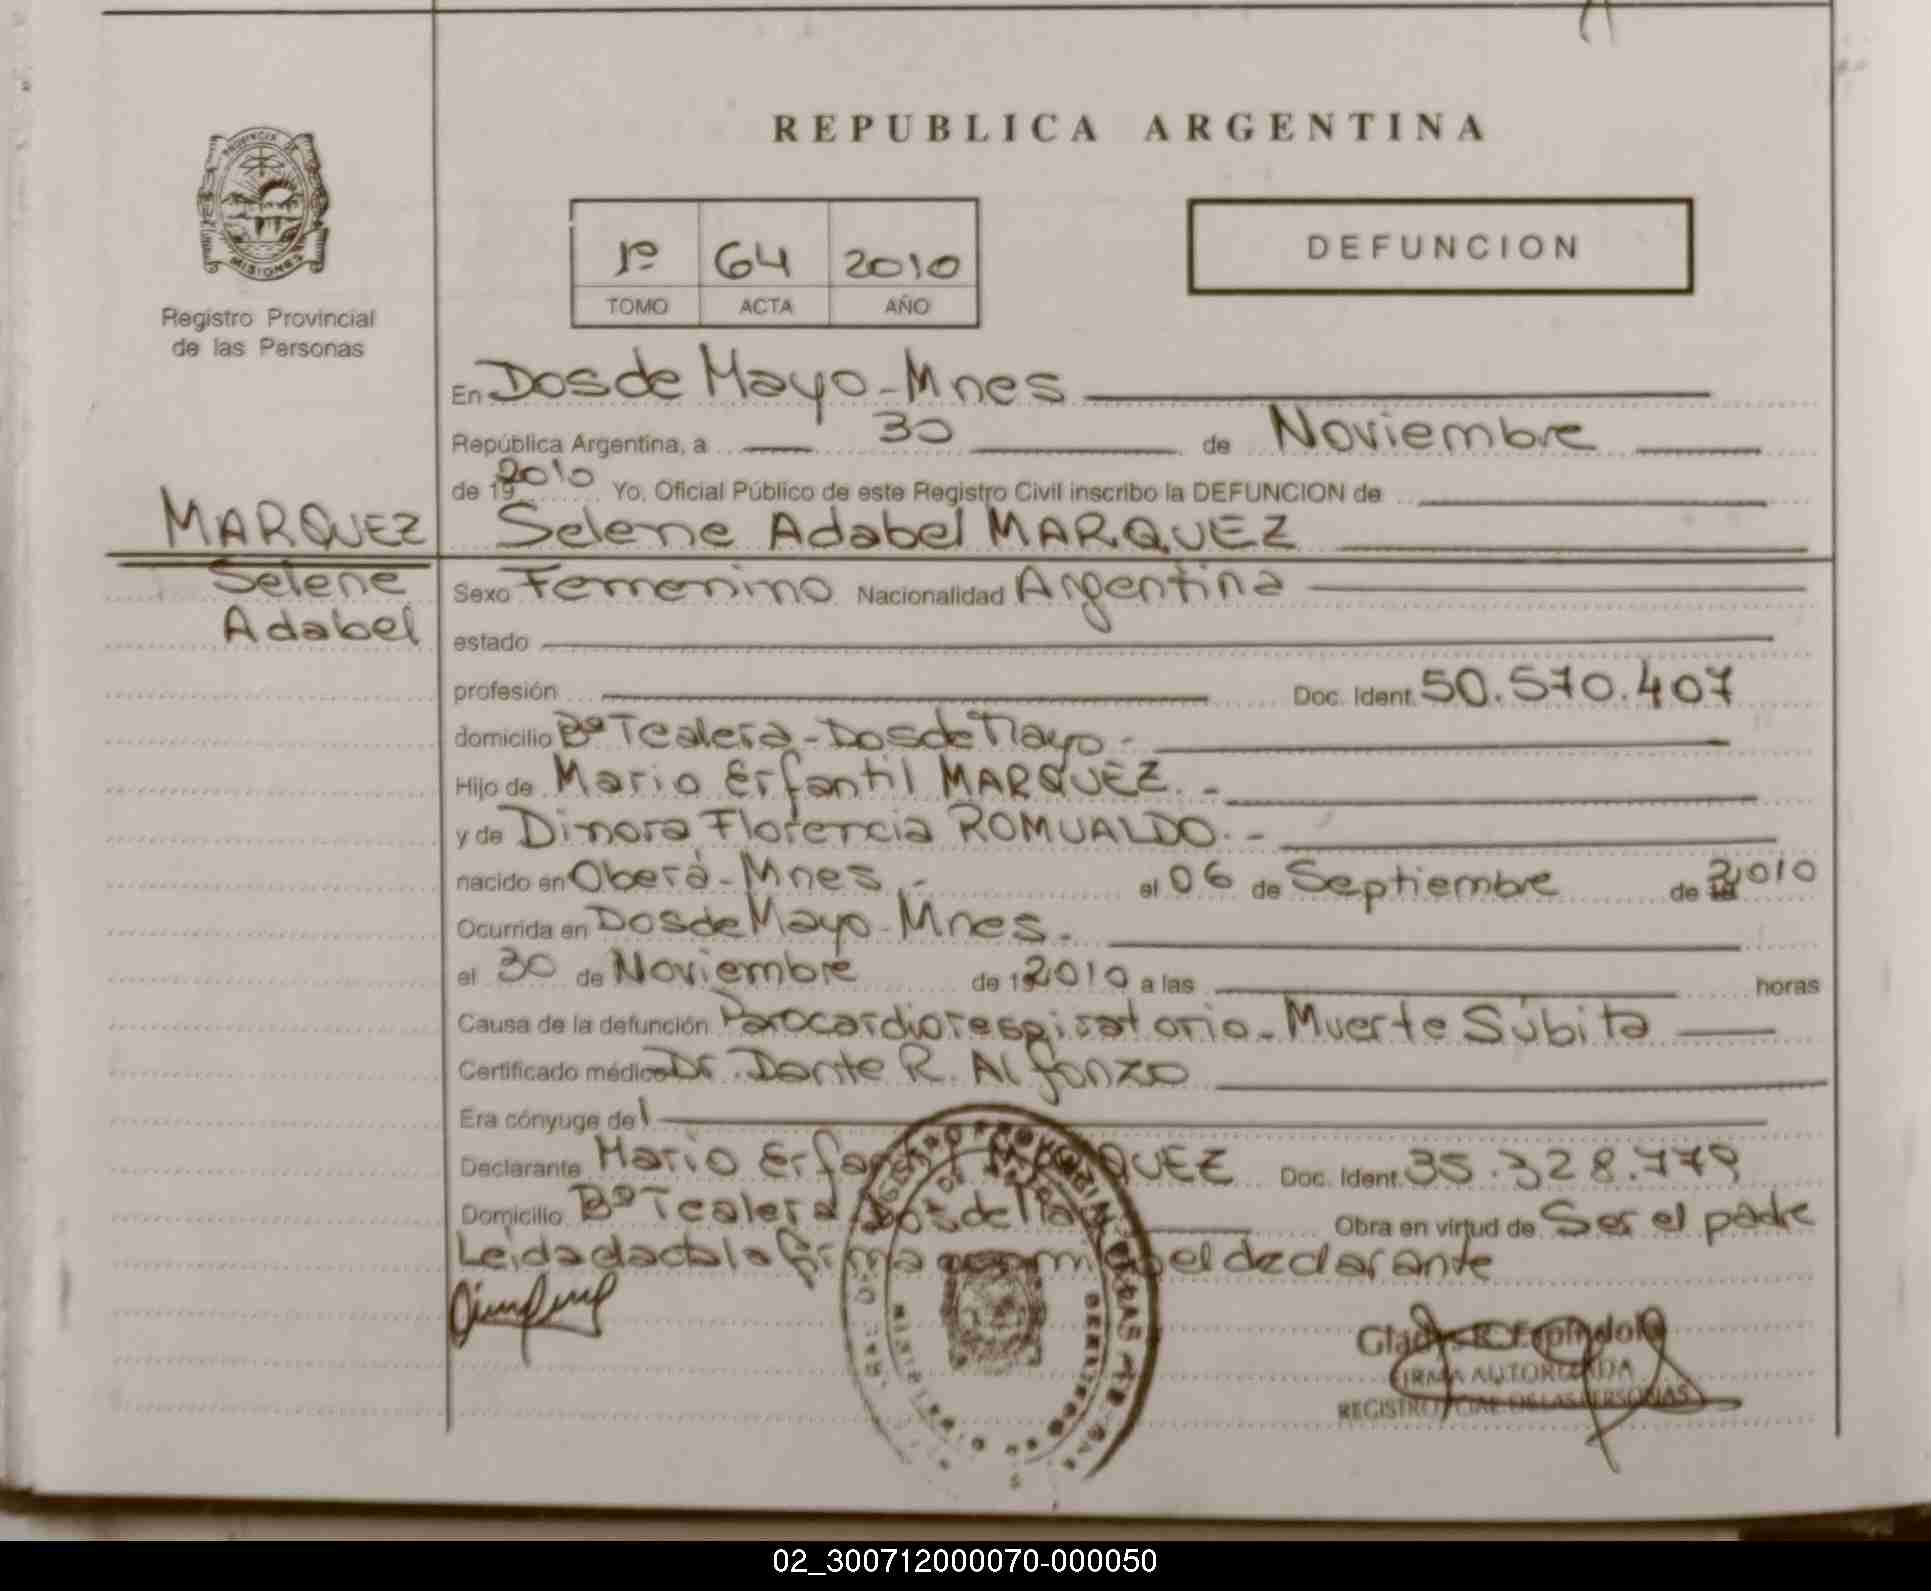 REPUBLICA ARGENTINA
PROVINCIA DE
MISIONES
Registro Provincial
de las Personas
1º 64 2010
TOMO ACTA AÑO
DEFUNCION
En Dos de Mayo - Mnes
República Argentina, a 30 de Noviembre
de 19 2010 Yo, Oficial Público de este Registro Civil inscribo la DEFUNCION de
MARQUEZ
Selene
Adabel
Selene Adabel MARQUEZ
Sexo Femenino Nacionalidad Argentina
estado
profesión Doc. Ident. 50.570.407
domicilio Bº Tealera - Dos de Mayo -
Hijo de Mario Erfantil MARQUEZ. -
y de Dinora Florencia ROMUALDO. -
nacido en Oberá - Mnes. - el 06 de Septiembre de 2010
Ocurrida en Dos de Mayo - Mnes.
el 30 de Noviembre de 19 2010 a las horas
Causa de la defunción Parocardiorespiratorio - Muerte Súbita
Certificado médico Dr. Dante R. Alfonzo
Era cónyuge de
Declarante Mario Erfantil MARQUEZ Doc. Ident. 35.328.779
Domicilio Bº Tealera Dos de Mayo Obra en virtud de Ser el padre
Leida dada la firma con mi y el declarante
Gladys Espindola
FIRMA AUTORIZADA
REGISTRO DE LAS PERSONAS
02_300712000070-000050